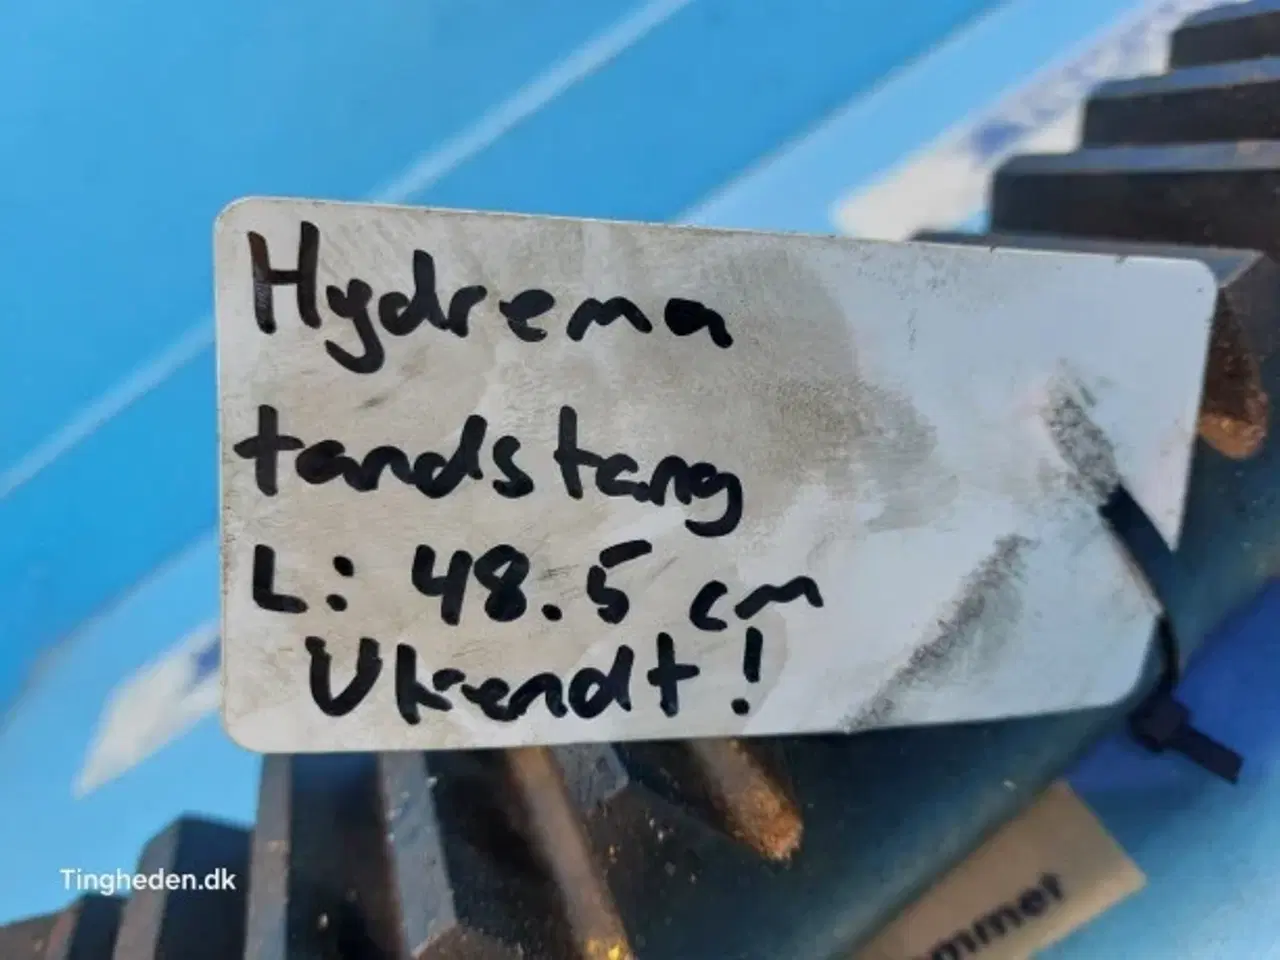 Hydrema
tandstang
L: 48.5 cm
Ukendt!
Tingheden.dk